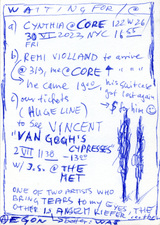 WAITTING FOR/@
a) CYNTHIA @CORE 122 W26
30 VI 2023 NYC 16 55
FRI
b) REMI VIOLLAND to arrive
@ 319, me @CORE ↑
he came 1900 his suitcase
got lost again
c) our tickets by him
(HUGE LINE)
to SEE VINCENT
"VAN GOGH'S
CYPRESSES"
2 VII 1130 - 1330
w/ J.S. @ THE
MET
ONE OF TWO ARTISTS WHO
BRING TEARS to MY EYES, the
OTHER IS ANSELM KIEFER. THE
EGON